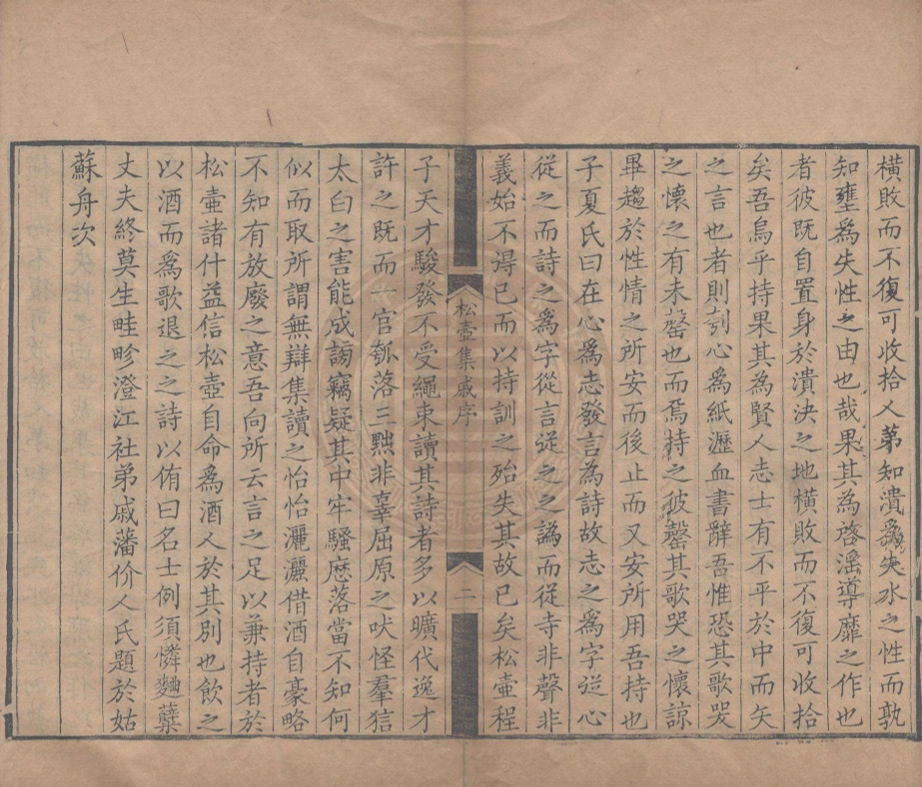 橫敗而不復可收拾人第知潰爲失水之性而孰
知壅爲失性之由也哉果其為啓滛導靡之作也
者彼既自置身於潰決之地橫敗而不復可收拾
矣吾烏乎持果其為賢人志士有不平於中而矢
之言也者則刳心為紙瀝血書辭吾惟恐其歌哭
之懷之有未罄也而焉持之彼罄其歌哭之懷諒
畢趨於性情之所安而後止而又安所用吾持也
子夏氏曰在心為志發言為詩故志之爲字從心
從之而詩之爲字從言從之之譌而從寺非聲非
義始不得已而以持訓之殆失其故已矣松壺程
松壺集戚序
二
子天才駿發不受繩束讀其詩者多以曠代逸才
許之既而一官瓠落三黜非辜屈原之吠怪羣狺
太白之害能成謗竊疑其中牢騷懕落當不知何
似而取所謂無辯集讀之怡怡灑灑借酒自豪略
不知有放廢之意吾向所云言之足以兼持者於
松壺諸什益信松壺自命爲酒人於其別也飲之
以酒而爲歌退之之詩以侑曰名士例須憐麯蘖
丈夫終莫生畦畛澄江社弟戚藩价人氏題於姑
蘇舟次